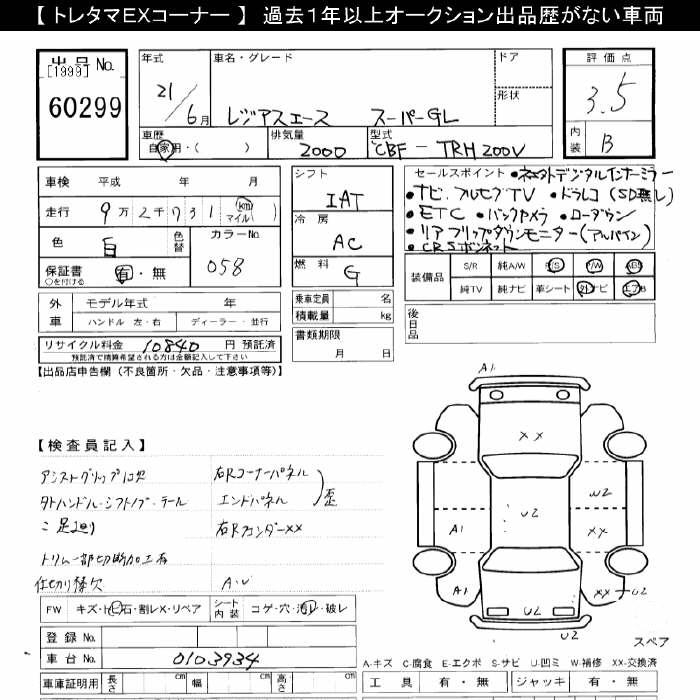 【 トレタマEXコーナー 】 過去１年以上オークション出品歴がない車両
出品 No.
[1999]
60299
年式
21/6月
車名・グレード
レジアスエース スーパーGL
ドア
形状
車歴
自家用・( )
排気量
2000
型式
CBF-TRH200V
評価点
3.5
内装
B
車検 平成 年 月
走行 9万2千731 (km マイル)
色 白 色替
カラーNo.
058
保証書 有・無
○を付ける
シフト
IAT
冷房
AC
燃料
G
セールスポイント
・ナビ フルセグTV ・ドラレコ(SD無し)
・ETC ・バックカメラ ・ローダウン
・リアフリップダウンモニター(アルパイン)
・CRSボンネット
装備品
S/R 純A/W P/S P/W ABS
純TV 純ナビ 革シート 外ナビ エアB
外車
モデル年式 年
ハンドル 左・右 ディーラー・並行
乗車定員 名
積載量 kg
後日品
リサイクル料金 10840 円 預託済
預託済で精算希望される方は金額記入して下さい
書類期限
月 日
【出品店申告欄 (不良箇所・欠品・注意事項等)】
【検査員記入】
右Rコーナーパネル
エンドパネル
歪
右Rフェンダーxx
トリム一部切断加工有
仕切り棒欠
A・U
FW キズ・ト石・割レX・リペア
シート内装 コゲ・穴・汚レ・破レ
登録 No.
車台 No. 0103934
車庫証明用 長さ cm 幅 cm 高さ cm
A1
XX
U2
U2
A1
XX
A1
U2
XX
U2
U2
スペア
A-キズ C-腐食 E-エクボ S-サビ U-凹ミ W-補修 XX-交換済
工具 有・無 ジャッキ 有・無